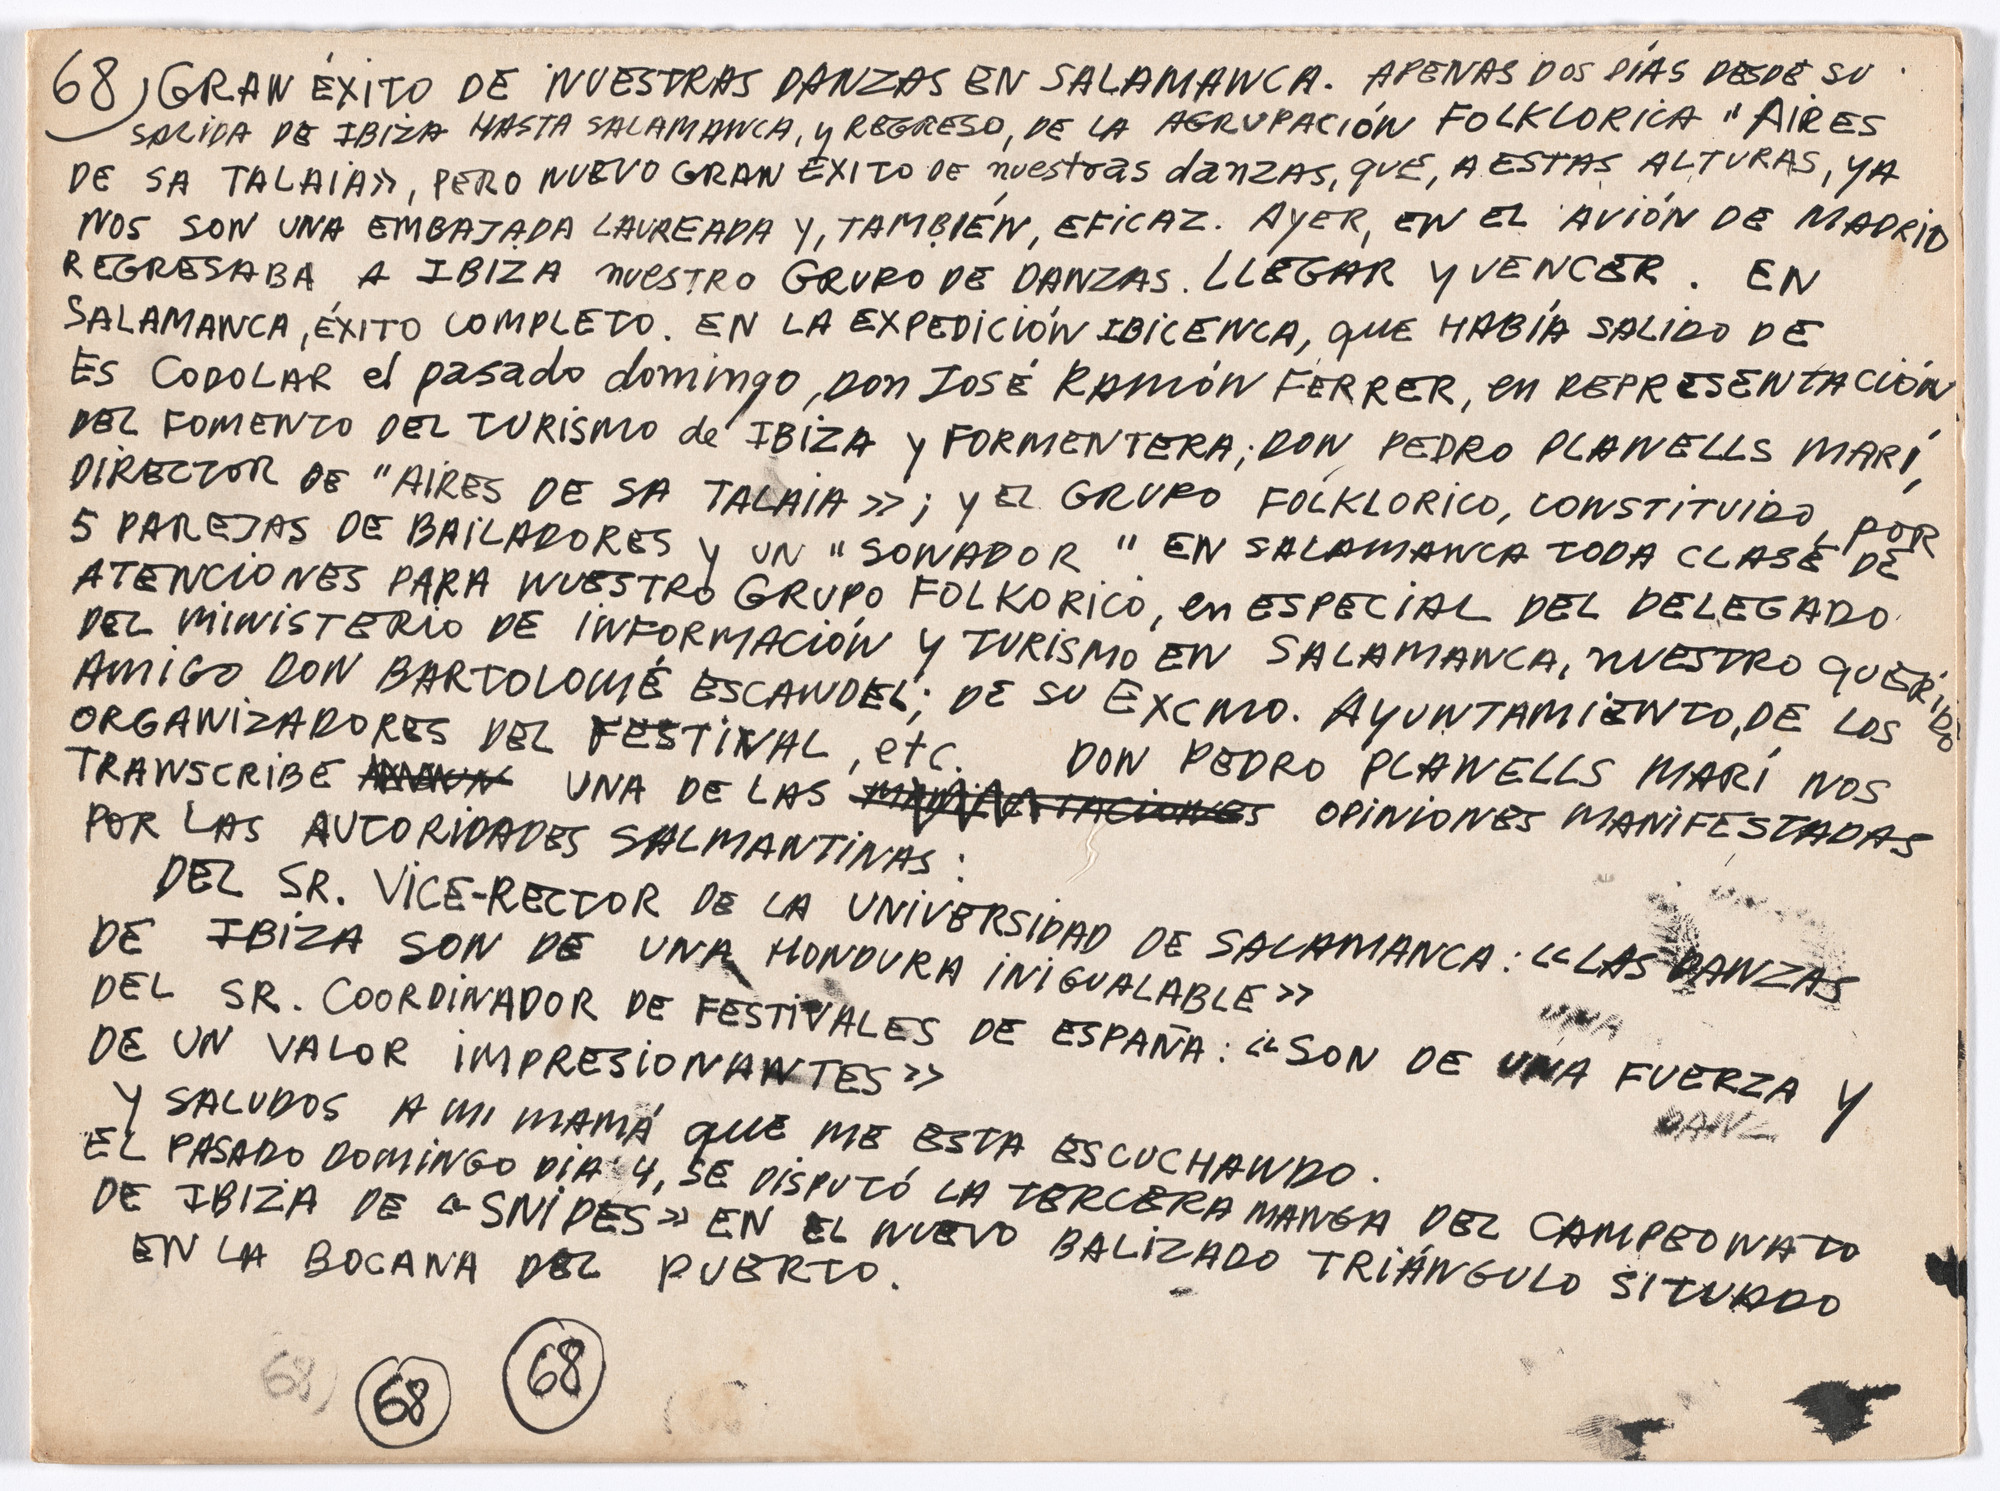 68) GRAN ÉXITO DE NUESTRAS DANZAS EN SALAMANCA. APENAS DOS DÍAS DESDE SU
SALIDA DE IBIZA HASTA SALAMANCA, y REGRESO, DE LA AGRUPACIÓN FOLKLORICA "AIRES
DE SA TALAIA», PERO NUEVO GRAN ÉXITO DE nuestras danzas, que, A ESTAS ALTURAS, YA
NOS SON UNA EMBAJADA LAUREADA Y, TAMBIÉN, EFICAZ. AYER, EN EL AVIÓN DE MADRID
REGRESABA A IBIZA nuestro GRUPO DE DANZAS. LLEGAR y VENCER. EN
SALAMANCA, ÉXITO COMPLETO. EN LA EXPEDICIÓN IBICENCA, que HABÍA SALIDO DE
ES CODOLAR el pasado domingo, Don JOSÉ RAMÓN FERRER, en REPRESENTACIÓN
DEL FOMENTO DEL TURISMO de IBIZA y FORMENTERA; DON PEDRO PLANELLS MARÍ,
DIRECTOR DE "AIRES DE SA TALAIA»; y EL GRUPO FOLKLORICO, CONSTITUIDO POR
5 PAREJAS DE BAILADORES y UN "SONADOR" EN SALAMANCA TODA CLASE DE
ATENCIONES PARA NUESTRO GRUPO FOLKORICO, en ESPECIAL DEL DELEGADO
DEL MINISTERIO DE INFORMACIÓN Y TURISMO EN SALAMANCA, NUESTRO QUERIDO
AMIGO DON BARTOLOMÉ ESCANDEL; DE SU EXCMO. AYUNTAMIENTO, DE LOS
ORGANIZADORES DEL FESTIVAL, etc. DON PEDRO PLANELLS MARÍ NOS
TRANSCRIBE UNA DE LAS MANIFESTACIONES OPINIONES MANIFESTADAS
POR LAS AUTORIDADES SALMANTINAS:
DEL SR. VICE-RECTOR DE LA UNIVERSIDAD DE SALAMANCA: «LAS DANZAS
DE IBIZA SON DE UNA HONDURA INIGUALABLE»
DEL SR. COORDINADOR DE FESTIVALES DE ESPAÑA: «SON DE UNA FUERZA Y
DE UN VALOR IMPRESIONANTES»
Y SALUDOS A MI MAMÁ QUE ME ESTA ESCUCHANDO.
EL PASADO DOMINGO DIA 4, SE DISPUTÓ LA TERCERA MANGA DEL CAMPEONATO
DE IBIZA DE «SNIPES» EN EL NUEVO BALIZADO TRIÁNGULO SITUADO
EN LA BOCANA DEL PUERTO.
68) 68 68